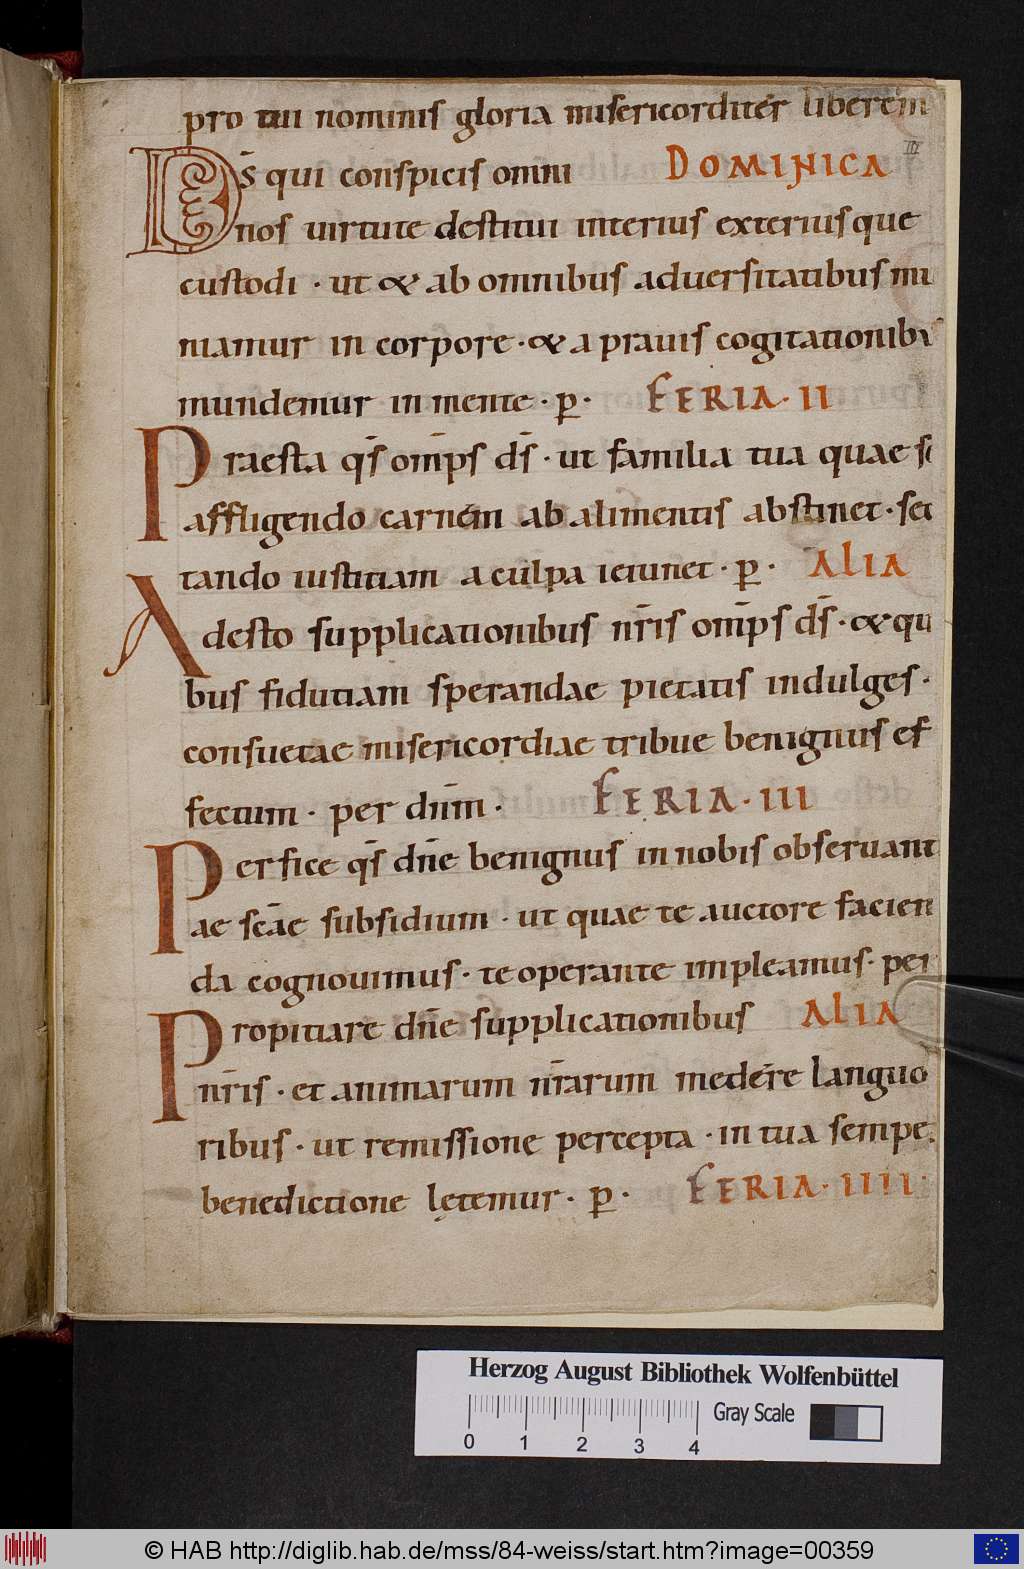 pro tui nominis gloria misericorditer liberem
DS̄ qui conspicis omni DOMINICA II
nos uirtute destitui interius exteriusque
custodi · ut & ab omnibus aduersitatibus mu
niamur in corpore · & a prauis cogitationibus
mundemur in mente · p̄ · FERIA · II
Praesta qs̄ omp̄s ds̄ · ut familia tua quae se
affligendo carnem ab alimentis abstinet · sec
tando iustitiam a culpa ieiunet · p̄ · ALIA
Adesto supplicationibus nr̄is omp̄s ds̄ · & qui
bus fidutiam sperandae pietatis indulges ·
consuetae misericordiae tribue benignus ef
fectum · per dnm̄ · FERIA · III
Perfice qs̄ dn̄e benignus in nobis obseruanti
ae sc̄ae subsidium · ut quae te auctore facien
da cognouimus · te operante impleamus · per
Propitiare dn̄e supplicationibus ALIA
nr̄is · et animarum nr̄arum medere languo
ribus · ut remissione percepta · in tua semper
benedictione lętemur · p̄ · FERIA · IIII ·
Herzog August Bibliothek Wolfenbüttel
Gray Scale
0 1 2 3 4
© HAB http://diglib.hab.de/mss/84-weiss/start.htm?image=00359